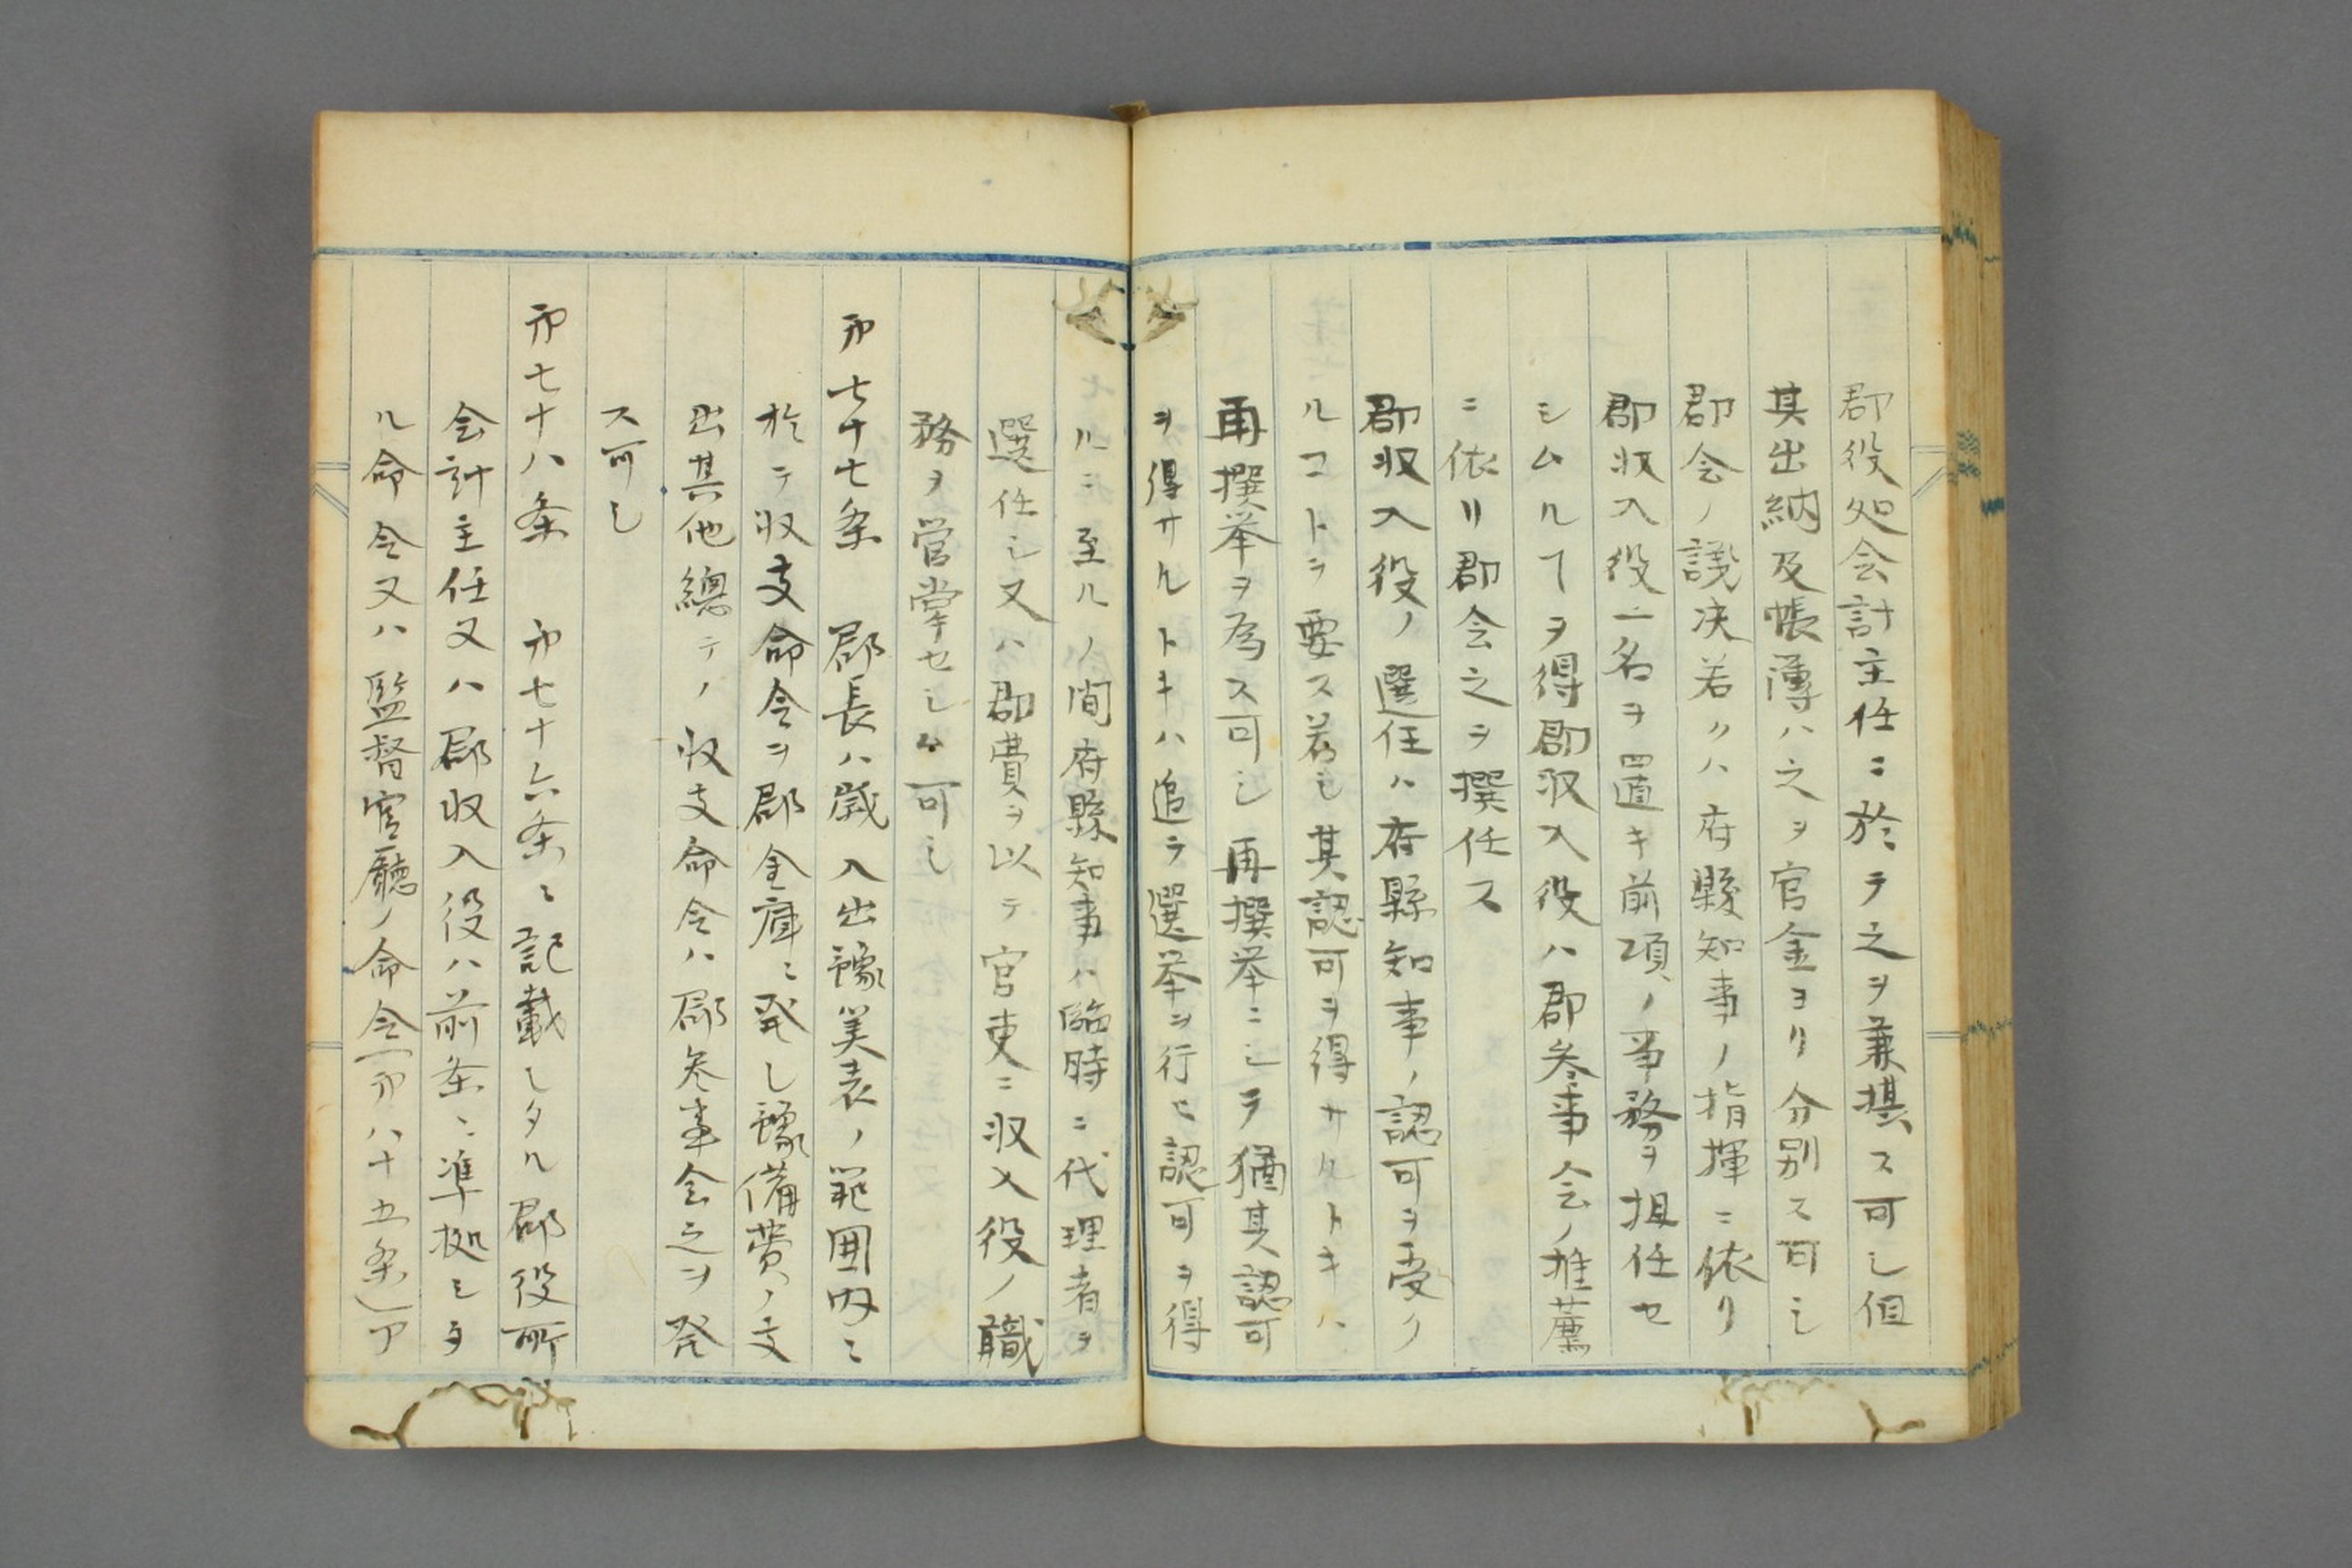 郡役処会計主任ニ於テ之ヲ兼摂ス可シ但
其出納及帳簿ハ之ヲ官金ヨリ分別ス可シ
郡会ノ議決若クハ府縣知事ノ指揮ニ依リ
郡収入役一名ヲ置キ前項ノ事務ヲ担任セ
シムルヿヲ得郡収入役ハ郡参事会ノ推薦
ニ依リ郡会之ヲ撰任ス
郡収入役ノ選任ハ府縣知事ノ認可ヲ受ク
ルコトヲ要ス若シ其認可ヲ得サルトキハ
再撰挙ヲ為ス可シ再撰挙ニシテ猶其認可
ヲ得サルトキハ追テ選挙ヲ行ヒ認可ヲ得
ルニ至ルノ間府縣知事ハ臨時ニ代理者ヲ
選任シ又ハ郡費ヲ以テ官吏ニ収入役ノ職
務ヲ管掌セシム可シ
㐧七十七条　郡長ハ歳入出豫算表ノ範囲内ニ
於テ収支命令ヲ郡金庫ニ発し豫備費ノ支
出其他總テノ収支命令ハ郡参事会之ヲ発
ス可し
㐧七十八条　㐧七十六条ニ記載しタル郡役所
会計主任又ハ郡収入役ハ前条ニ準拠シタ
ル命令又ハ監督官廳ノ命令（㐧八十五条）ア